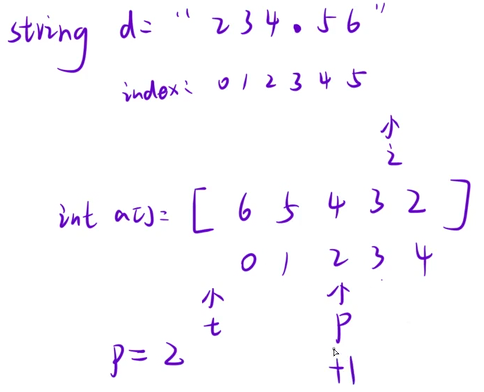 string d= " 2 3 4 . 5 6 "
index: 0 1 2 3 4 5
i
int a[]= [ 6 5 4 3 2 ]
0 1 2 3 4
t p
p = 2 +1